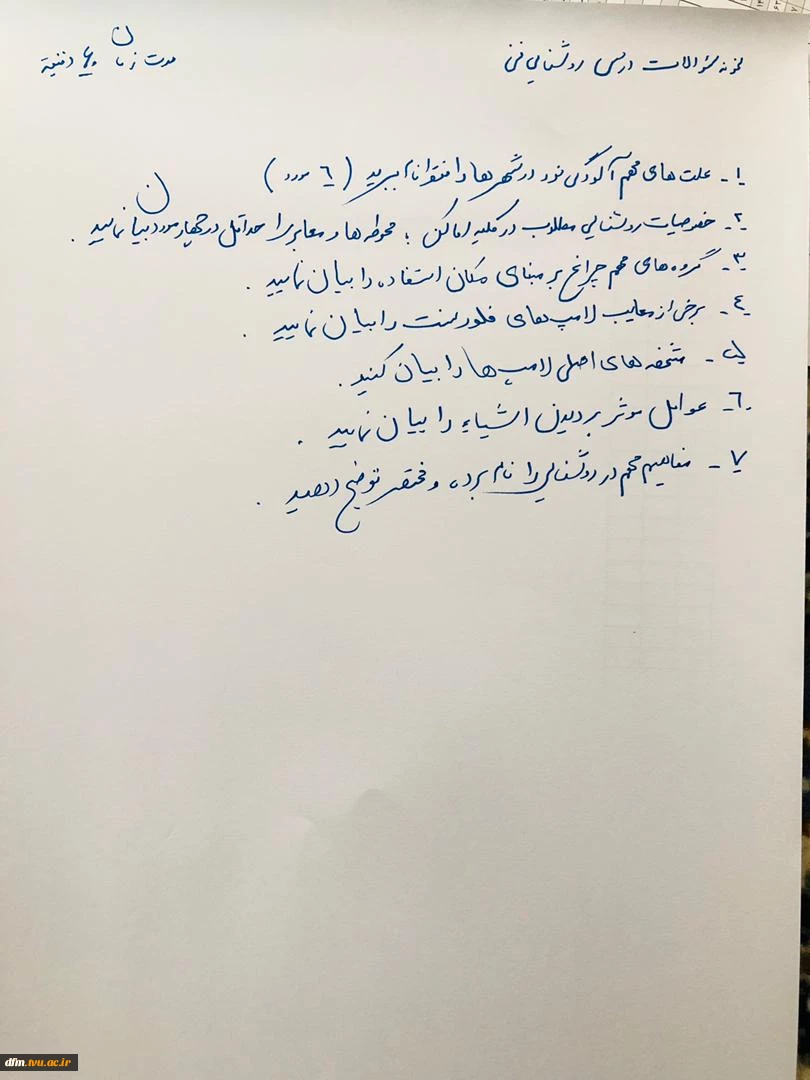 نمونه سؤالات درس روشنایی فنی
مدت زمان دقیقه
۱- علت های مهم آلودگی نور در شهرها را نام ببرید (٦ مورد)
۲- خصوصیات روشنایی مطلوب در کلیه اماکن ؛ محوطه ها و معابر را حداقل در چهار مورد بیان نمائید .
۳- گروه های مهم چراغ بر مبنای مکان استفاده را بیان نمایید .
٤- برخی از معایب لامپ های فلورسنت را بیان نمایید .
۵- مشخصه های اصلی لامپ ها را بیان کنید .
٦- عوامل موثر بر دیدن اشیاء را بیان نمایید .
۷- مفاهیم مهم در روشنایی را نام برده و مختصر توضیح دهید .
dfm.tvu.ac.ir